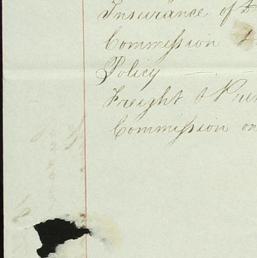 Insurance of
Commission
Policy
Freight &
Commission on